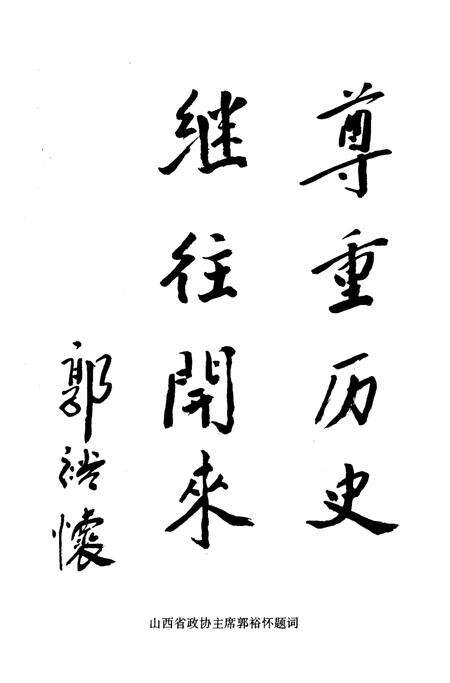 尊重历史
继往開來
郭裕懷
山西省政协主席郭裕怀题词